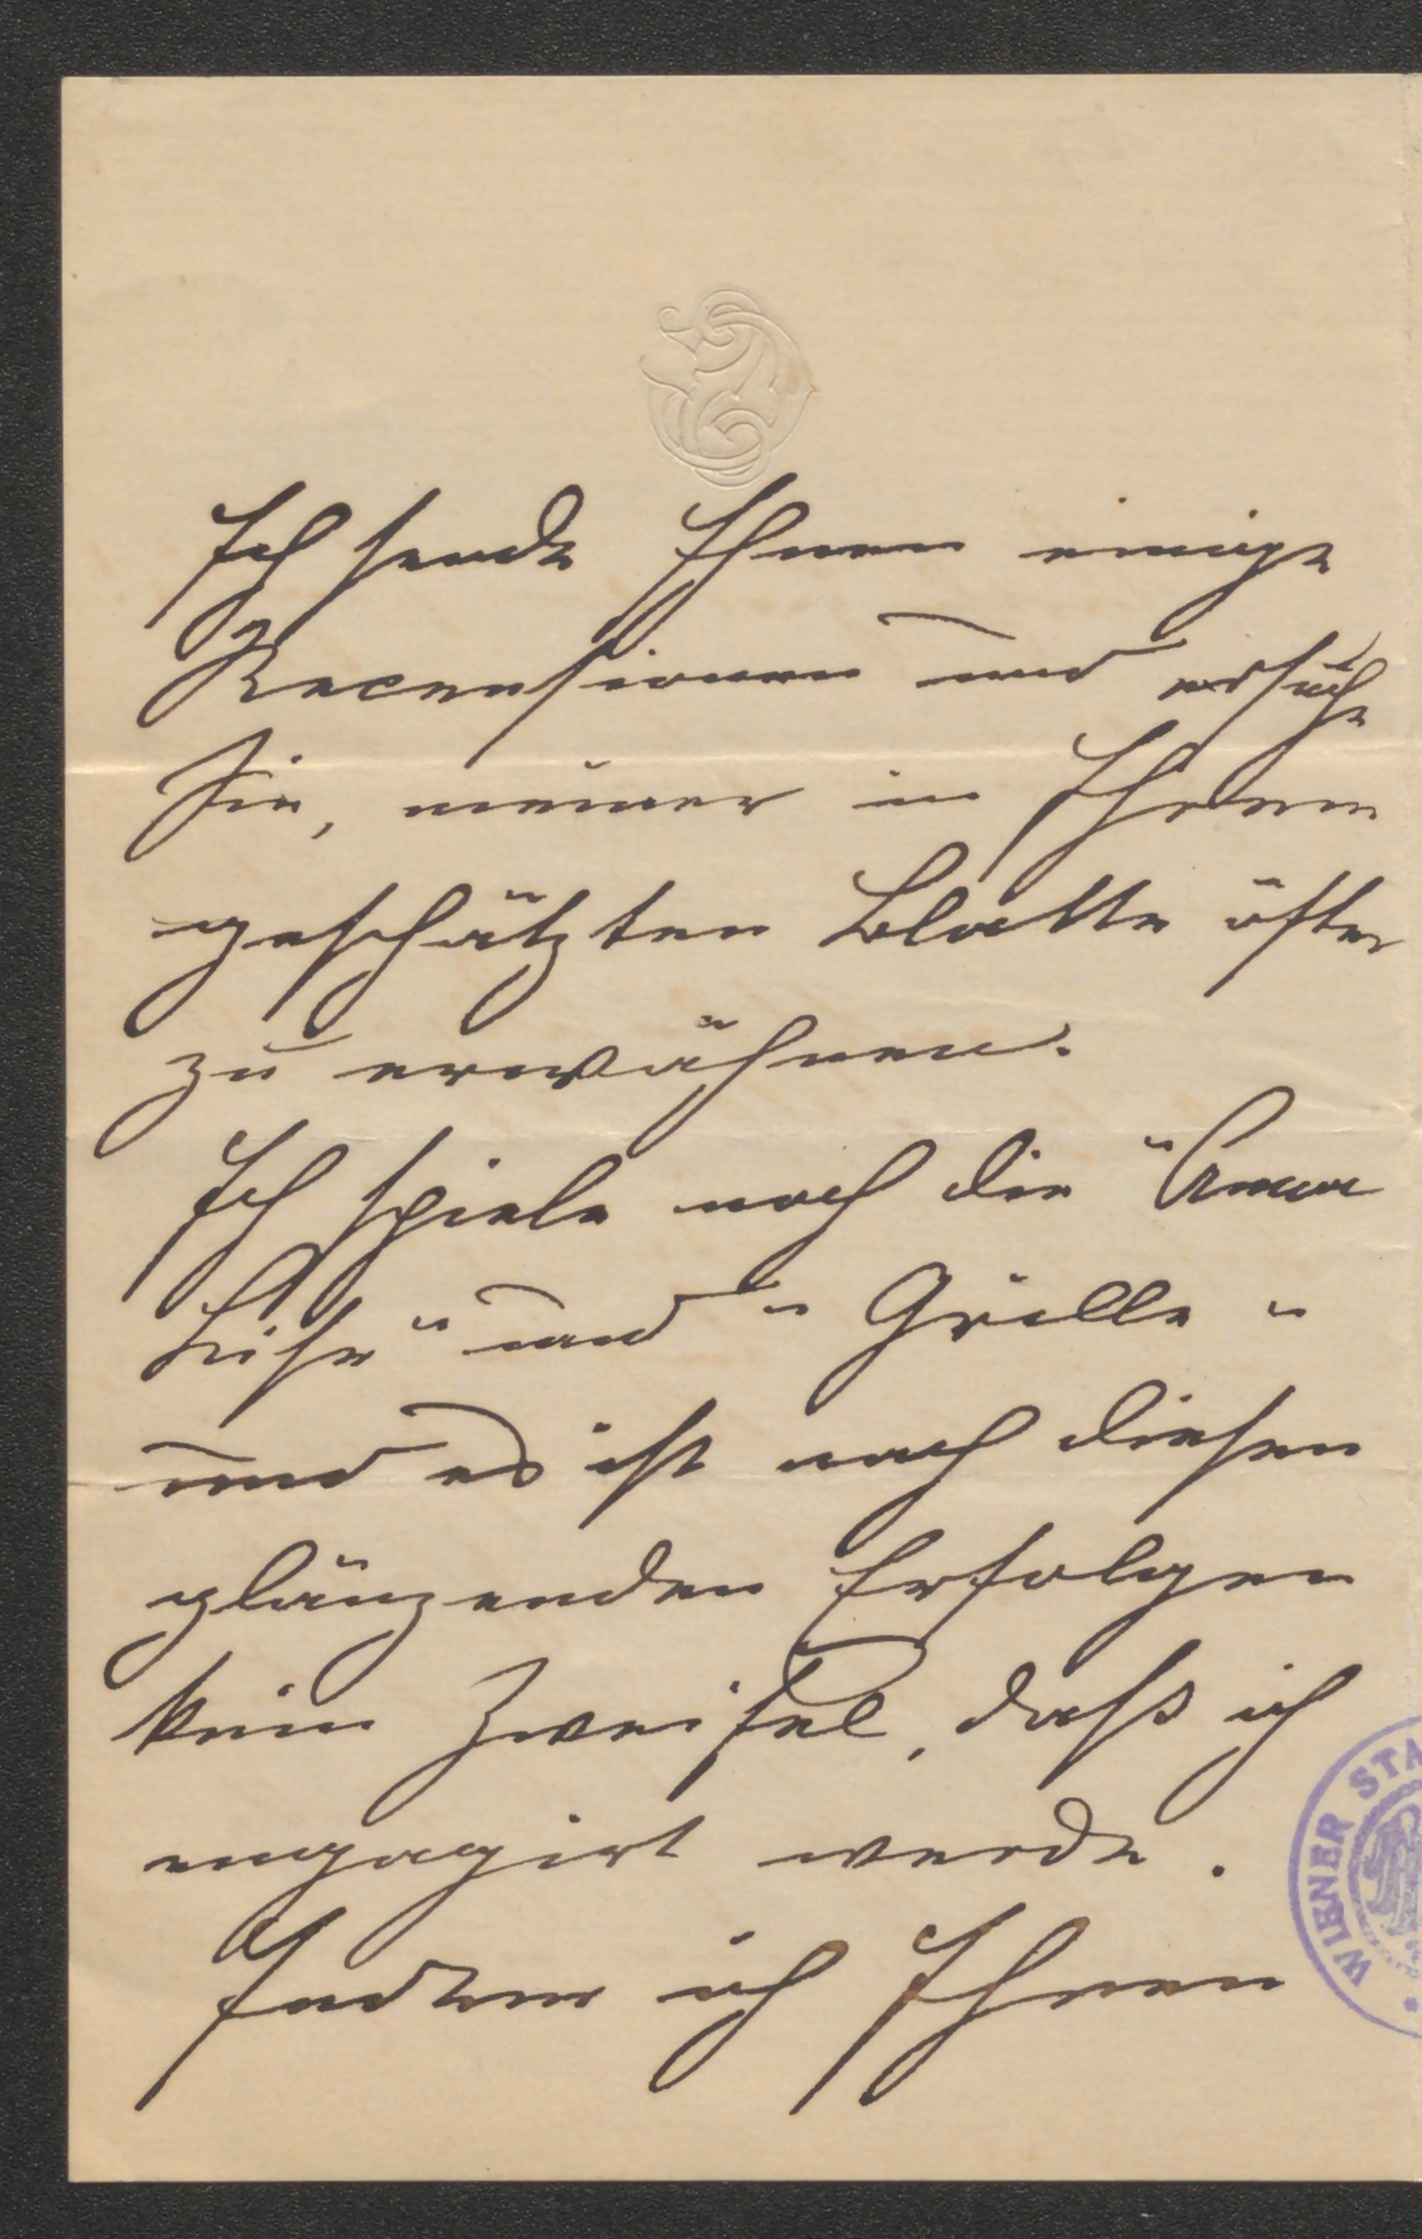 Ich sende Ihnen einige
Recensionen und ersuche
Sie, meiner in Ihrem
geschätzten Blatte öfter
zu erwähnen.
Ich spiele noch die "Anna
Lise" und "Grille"
und es ist nach diesen
glänzenden Erfolgen
kein Zweifel, daß ich
engagirt werde.
Indem ich Ihnen
WIENER STA